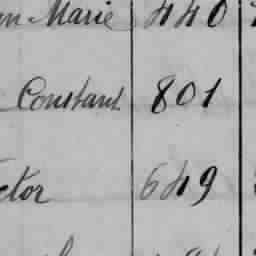 Marie 440
Constant 801
ctor 649